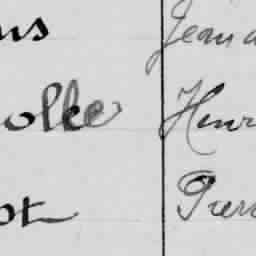 ns Jean
olle Henri
ot Pierr